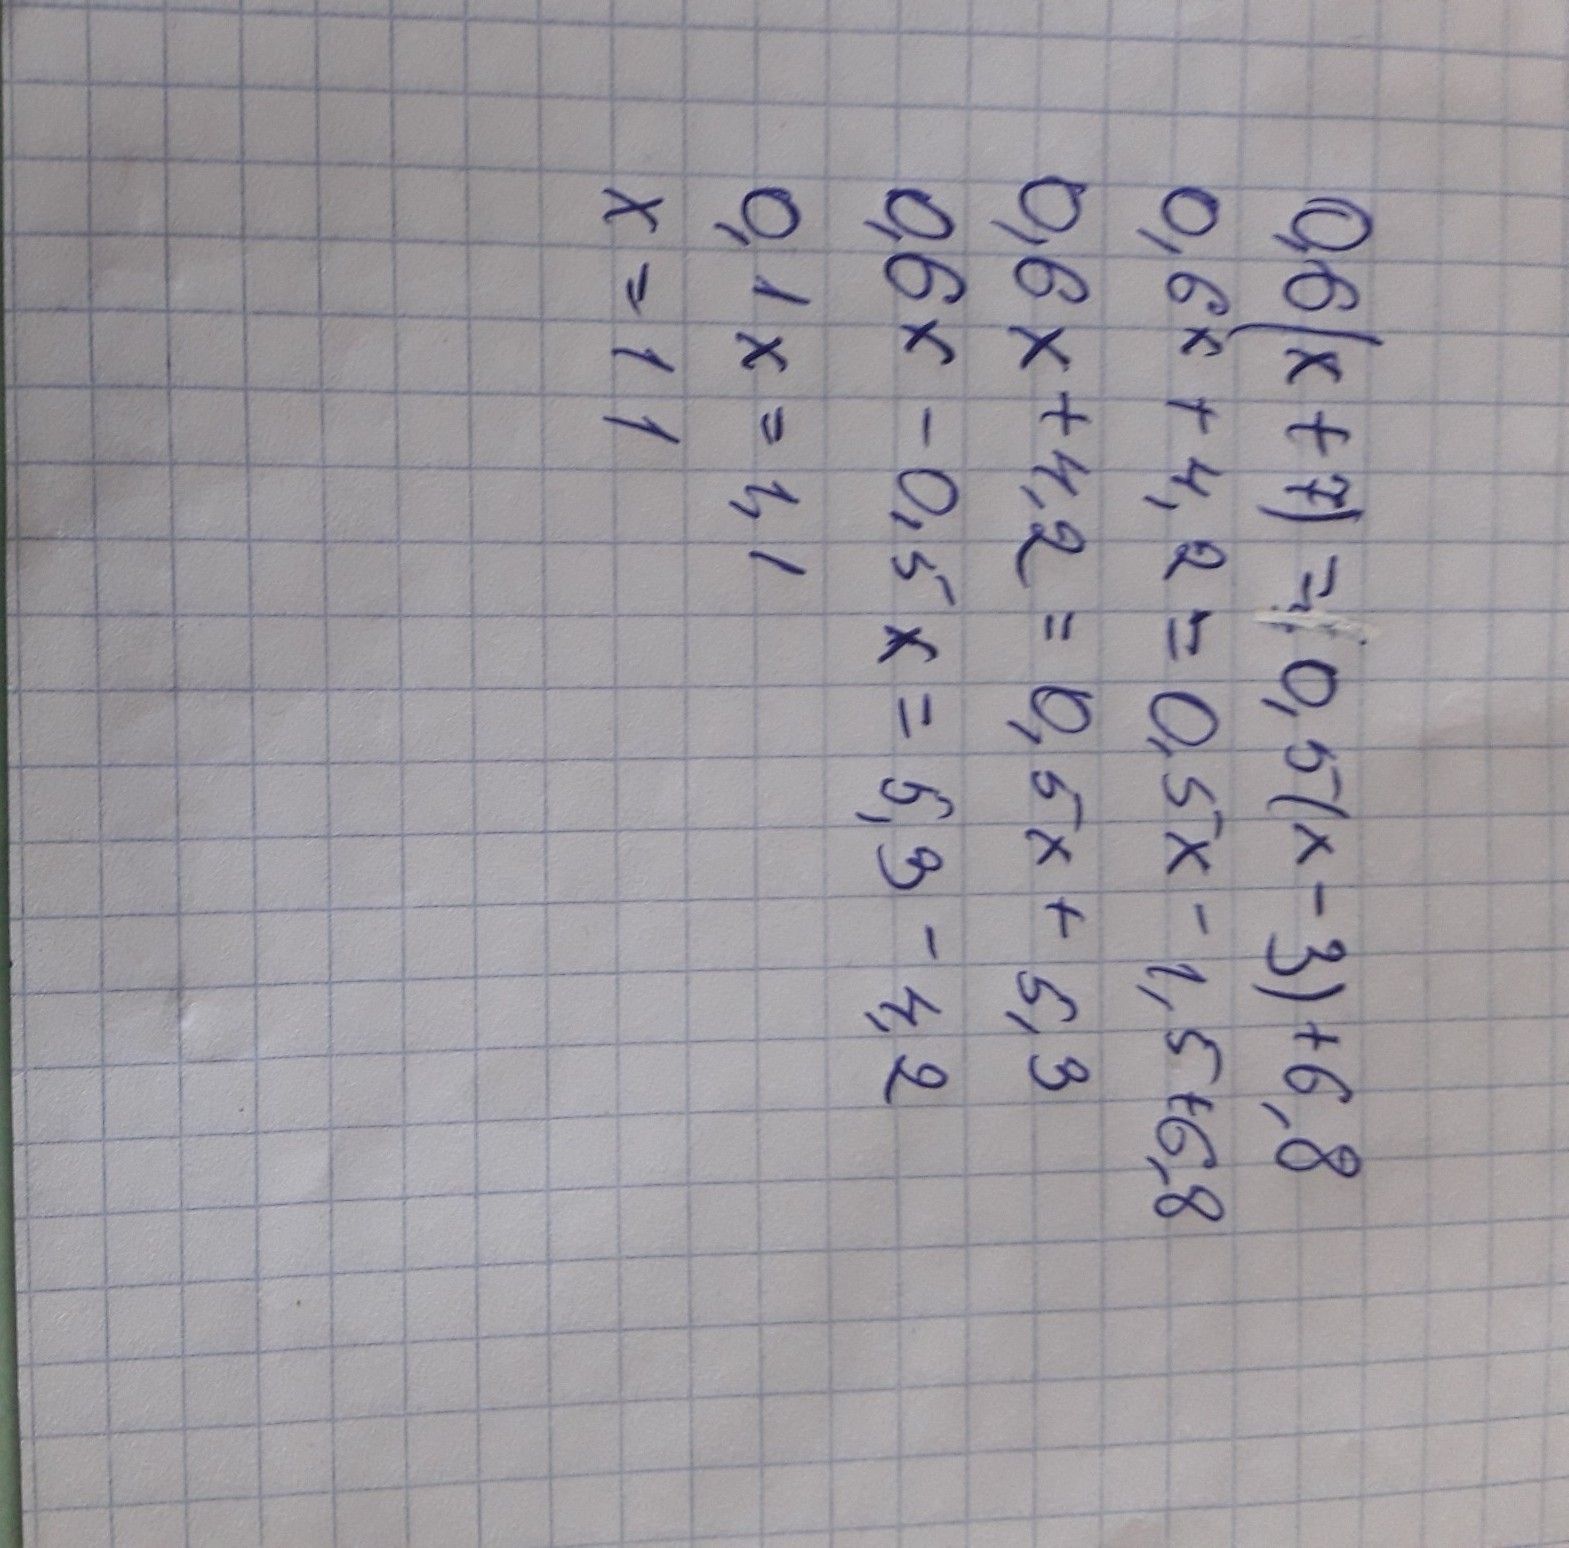 0,6(x+7)=0,5(x-3)+6,8
0,6x+4,2=0,5x-1,5+6,8
0,6x+4,2=0,5x+5,3
0,6x-0,5x=5,3-4,2
0,1x=1,1
x=11